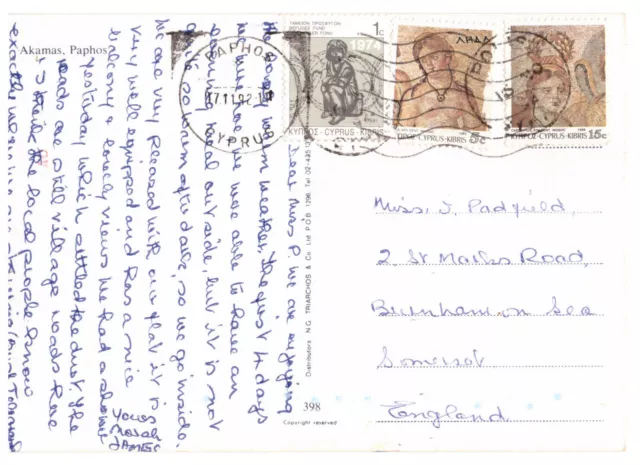 Akamas, Paphos
ΤΑΜΕΙΟΝ ΠΡΟΣΦΥΓΩΝ
REFUGEE FUND
1c
1974
ΚΥΠΡΟΣ-CYPRUS-KIBRIS
ΛΗΔΑ
ΚΥΠΡΟΣ-CYPRUS-KIBRIS 5c
ΚΥΠΡΟΣ-CYPRUS-KIBRIS 15c
PAPHOS
17.11.92
CYPRUS
Dear Miss P. We are enjoying
warm weather. The first 4 days
we were able to have an
meal outside, but it is not
so warm after dark, so we go inside.
We are very pleased with our flat it is
very well equipped and has a nice
balcony & lovely views we had a shower
yesterday which settled the dust. The
roads are still village roads here
& the local people know
exactly
Yours
Distributors: N.G. TRIARCHOS & Co. Ltd P.O.B. 1296, Tel 02-435
398
Copyright reserved
Miss, J. Padfield,
2 St Marks Road,
Burnham on Sea
Somerset
England